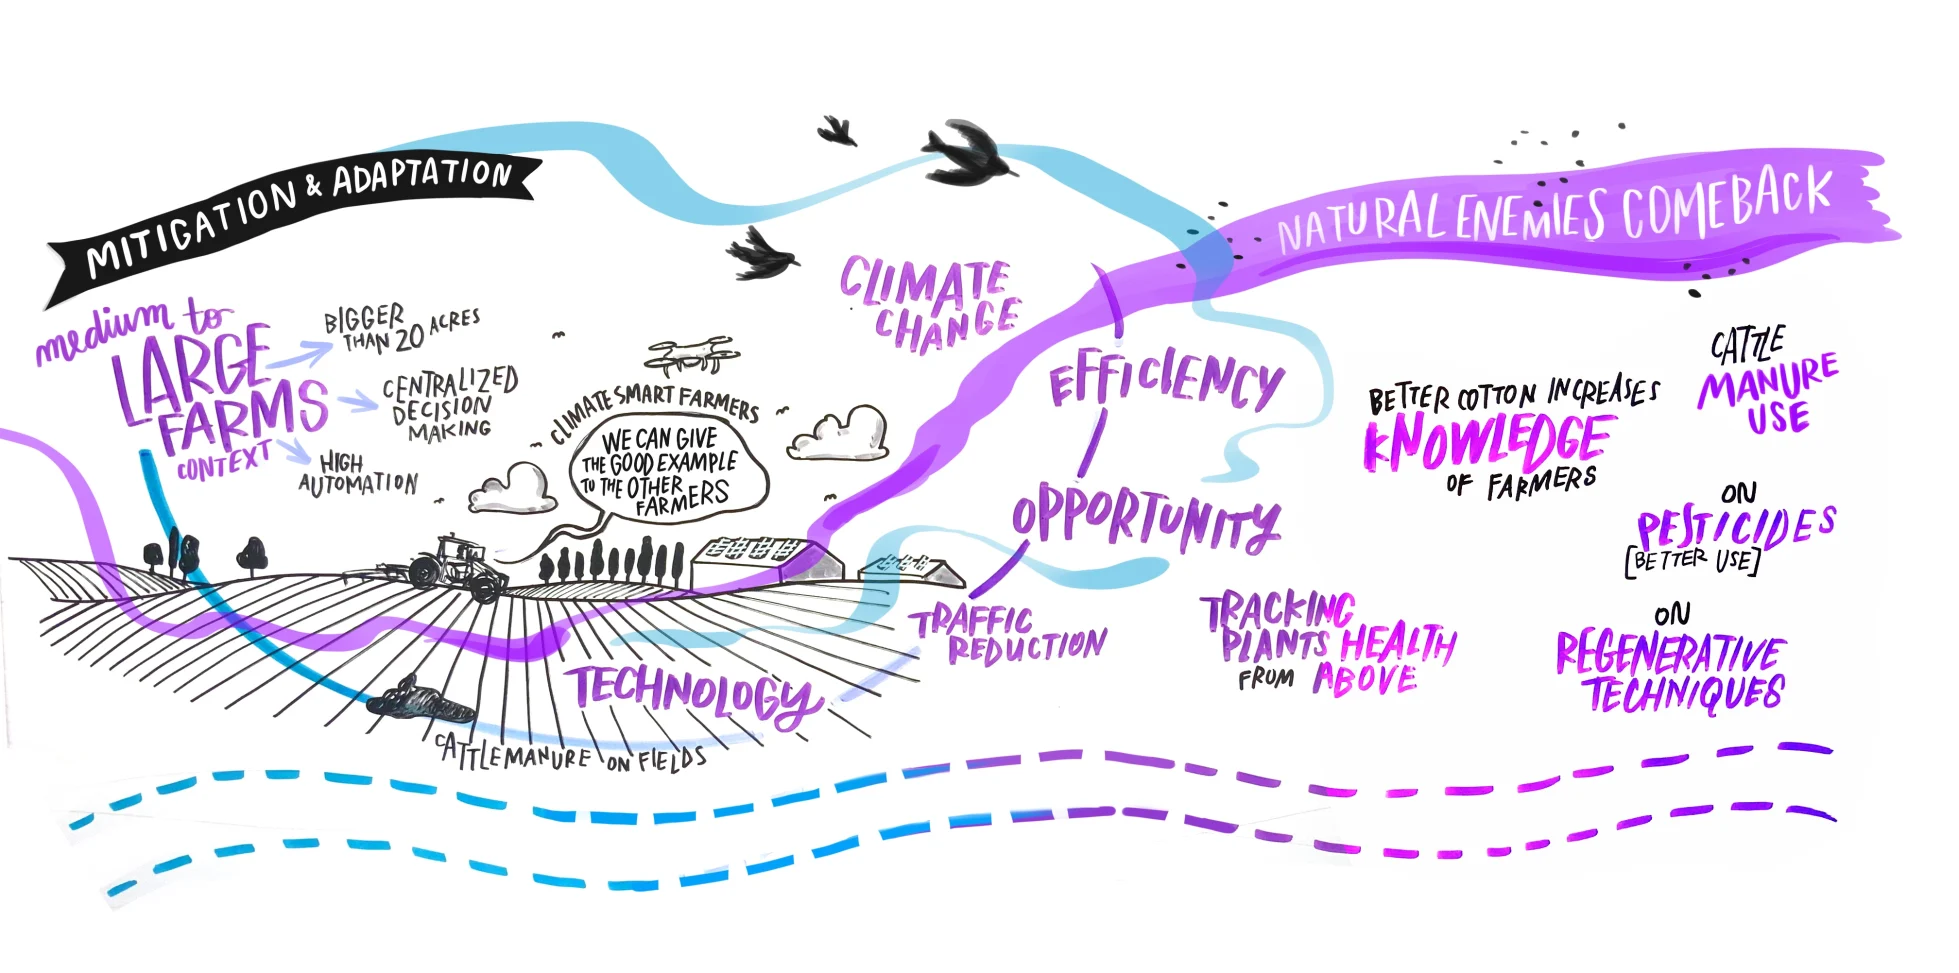 MITIGATION & ADAPTATION
medium to
LARGE
FARMS
CONTEXT
BIGGER
THAN 20 ACRES
CENTRALIZED
DECISION
MAKING
HIGH
AUTOMATION
CLIMATE SMART FARMERS
WE CAN GIVE
THE GOOD EXAMPLE
TO THE OTHER
FARMERS
CATTLE MANURE ON FIELDS
TECHNOLOGY
CLIMATE
CHANGE
EFFICIENCY
OPPORTUNITY
TRAFFIC
REDUCTION
NATURAL ENEMIES COMEBACK
BETTER COTTON INCREASES
KNOWLEDGE
OF FARMERS
TRACKING
PLANTS HEALTH
FROM ABOVE
CATTLE
MANURE
USE
ON
PESTICIDES
[BETTER USE]
ON
REGENERATIVE
TECHNIQUES